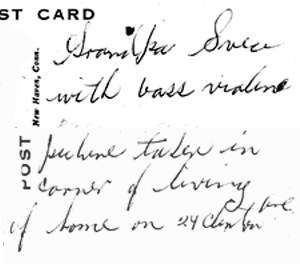 ST CARD
Grandpa
with bass violin
New Haven, Conn.
POST
picture taken in
corner of living
of home on 24 Clinton Ave